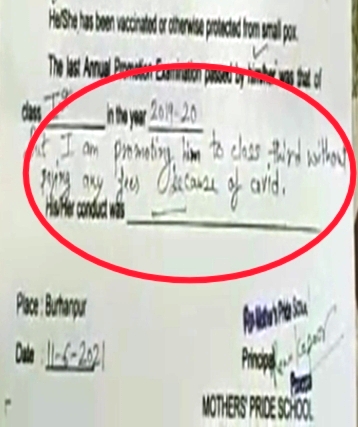 He/She has been vaccinated or otherwise protected from small pox.
The last Annual Promotion Examination passed by him/her was that of
class Ist in the year 2019-20
but I am promoting him to class third without
paying any fees because of covid.
His/Her conduct was
Place : Burhanpur
Date : 11-6-2021
Principal
MOTHERS' PRIDE SCHOOL